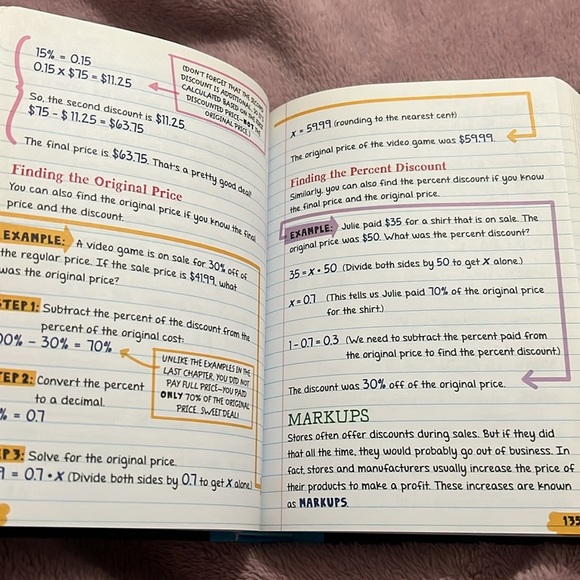 15% = 0.15
0.15 x $75 = $11.25
(DON'T FORGET THAT THE SECOND
DISCOUNT IS ADDITIONAL, SO IT'S
CALCULATED BASED ON THE FIRST
DISCOUNTED PRICE—NOT THE
ORIGINAL PRICE.)
So, the second discount is $11.25.
$75 - $11.25 = $63.75
The final price is $63.75. That's a pretty good deal!
Finding the Original Price
You can also find the original price if you know the final
price and the discount.
EXAMPLE: A video game is on sale for 30% off of
the regular price. If the sale price is $41.99, what
was the original price?
STEP 1: Subtract the percent of the discount from the
percent of the original cost:
00% - 30% = 70%
UNLIKE THE EXAMPLES IN THE
LAST CHAPTER, YOU DID NOT
PAY FULL PRICE—YOU PAID
ONLY 70% OF THE ORIGINAL
PRICE. SWEET DEAL!
TEP 2: Convert the percent
to a decimal.
% = 0.7
EP 3: Solve for the original price.
9 = 0.7 • x (Divide both sides by 0.7 to get x alone)
x = 59.99 (rounding to the nearest cent)
The original price of the video game was $59.99.
Finding the Percent Discount
Similarly, you can also find the percent discount if you know
the final price and the original price.
EXAMPLE: Julie paid $35 for a shirt that is on sale. The
original price was $50. What was the percent discount?
35 = x • 50 (Divide both sides by 50 to get x alone.)
x = 0.7 (This tells us Julie paid 70% of the original price
for the shirt.)
1 - 0.7 = 0.3 (We need to subtract the percent paid from
the original price to find the percent discount.)
The discount was 30% off of the original price.
MARKUPS
Stores often offer discounts during sales. But if they did
that all the time, they would probably go out of business. In
fact, stores and manufacturers usually increase the price of
their products to make a profit. These increases are known
as MARKUPS.
135